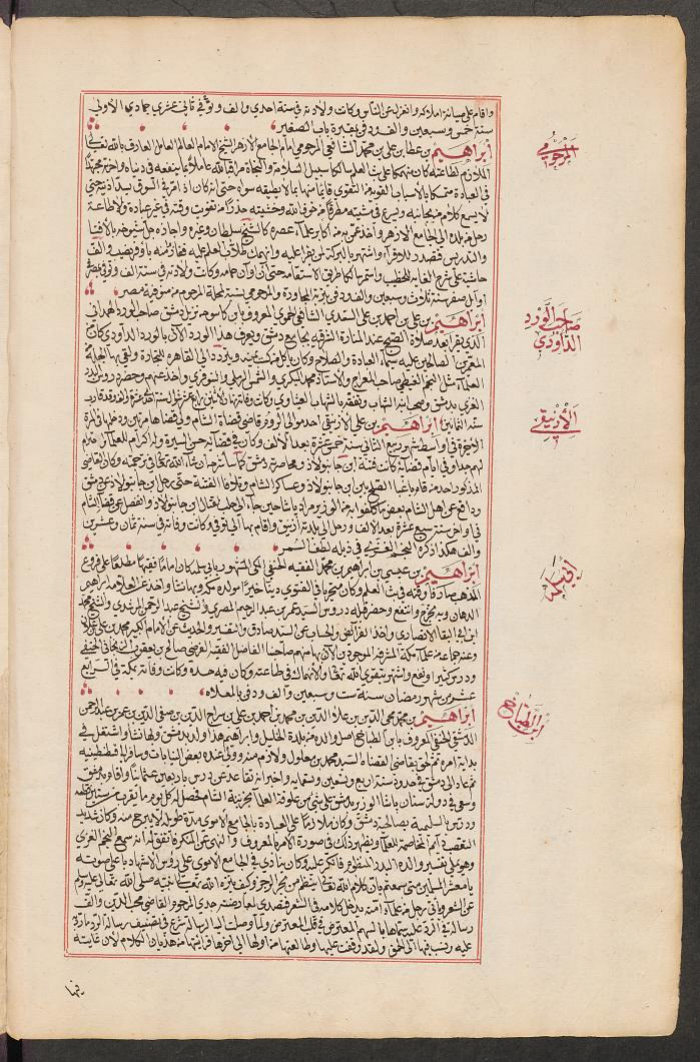 واقام على صيانة املاكه وانعزل عن الناس وكانت ولادته في سنة احدى والف وتوفي في ثاني عشري جمادي الأولى
سنة خمس وسبعين والف ودفن في مقبرة باب الصغير
ابراهيم بن عطا بن علي بن محمد الشافعي المرحومي امام الجامع الازهر الشيخ الامام العالم العامل العارف بالله تعالى
المرحومي
الملازم لطاعته كان منهمكا على بث العلم سالكا سبيل السلامة والنجاة مراقبا لله عاملا بما ينفعه في دنياه واخرته مجتهدا
في العبادة متمسكا بالاسباب القوية من التقوى قائما منها بما لا يطيقه سواه حتى انه كان اذا مر في السوق يسد اذنيه حتى
لا يسمع كلام من بجانبه ويسرع في مشيته مطرقا من خوف الله وخشيته حذرا من تفويت وقته في غير عبادة ولا طاعة
رحل من بلده الى الجامع الازهر واخذ عن به من اكابر علماء عصره كالشيخ سلطان وغيره واجازه جل شيوخه بالافتا
والتدريس فتصدر للاقراء واشتهر بالبركة لمن يقرأ عليه وانهمك طلاب العلم عليه ففازوا منه باوفر نصيب والف
حاشية على شرح الغاية للخطيب واستمر سالكا طريق الاستقامة حتى ان اوان حمامه وكانت ولادته في سنة الف وتوفي بمصر
اوائل صفر سنة ثلاث وسبعين والف ودفن بتربة المجاورة والمرحومي نسبة لمحلة المرحوم من منوفية مصر
ابراهيم بن علي بن احمد بن علي السعدي الشافعي الحموي المعروف بابن كاسوحة نزيل دمشق صاحب الورد
صاحب الورد
الداودي
الذي يقرأ بعد صلاة الصبح عند المنارة الشرقية بجامع دمشق ويعرف هذا الورد الآن بالورد الداودي كان من
المعمرين الصالحين عليه سيماء العبادة والصلاح وكان يأكل من كسبه ويتردد الى القاهرة للتجارة ولقي بها الجلة
العلماء مثل النجم الغيطي صاحب المعراج والاستاذ محمد البكري والشمس الرملي والشنوفري واخذ عنهم وحضر دروس البدر
الغزي بدمشق وصحب ابنه الشهاب وتفقه بالشهاب العيثاوي وكانت وفاته نهار الاثنين رابع
سنه الثمانين ابراهيم بن علي الازنيقي احد موالي الروم قاضي قضاة الشام ولي قضاها مرتين ودخلها في المرة
الأزنيقي
الاخيرة في اواسط شهر ربيع الثاني سنة خمس عشرة بعد الالف وكان في قضائه حسن السيرة وله اكرام للعلماء
لهم جدا وفي ايام قضائه كانت فتنة ابن جانبولاذ ومحاصرته دمشق كما سأشرحه ان شاء الله تعالى في ترجمته وكان القاضي
المذكور احد من قام باعباء الصلح بين ابن جانبولاذ وعساكر الشام وتلافا الفتنة حتى رحل ابن جانبولاذ عن دمشق
ودافع عن اهل الشام بعض ما كلفوا به من الوزير مراد باشا حين جاء الى حلب لقتال ابن جانبولاذ وانفصل عن قضاء الشام
في اواخر سنة سبع عشرة بعد الالف ورحل الى بلدته ازنيق واقام بها الى ان توفي وكانت وفاته في سنة ثمان وعشرين
والف هكذا ذكره النجم الغزي في ذيله لطف السمر
ابراهيم بن عيسى بن ابراهيم بن محمد الفقيه الحنفي المكي المشهور بابي سلمة كان اماما فقيها مطلعا على فروع
المذهب صارفا وقته في بث العلم وكان متحريا في الفتوى دينا خيرا مولده مكة وبها نشأ واخذ عن العلامة ابراهيم
الدهان وبه تخرج وانتفع وحضر قبله دروس السيد عمر بن عبد الرحيم البصري والشيخ عبد الرحمن المرشدي والشيخ محمد
ابن ابي البقا الانصاري واخذ القرائض والحساب عن السيد صادق والتفسير والحديث عن الامام الكبير محمد بن علي بن علان
وعنه جماعة من علماء مكة المشرفة الموجودين الآن بها منهم صاحبنا الفاضل الفقيه الفرضي صالح الحنفي
ودرس كثيرا ونفع واشتهر بتقوى الله تعالى والانهماك في طاعته وكان فيه حدة وكانت وفاته بمكة في الرابع
عشر من شهر رمضان سنة ست وسبعين والف ودفن بالمعلاه
ابراهيم بن محمد محي الدين بن علاء الدين بن محمد بن احمد بن علي بن سراج الدين بن صفي الدين بن عمر بن عبد الرحمن
ابن الطباخ
الدمشقي الحنفي المعروف بابن الطباخ اصل والده من بلدة الخليل وابراهيم هذا ولد بدمشق وبها نشأ واشتغل في
بداية امره ثم لحق بقاضي القضاة السيد محمد بن معلول ولازم منه وولي عنده بعض النيابات وسافر الى قسطنطينية
ثم عاد الى دمشق في حدود سنة اربع وتسعين وتسعمائة واخبر انه تقاعد عن درس باربعين عثمانيا واقام بدمشق
وسعى في دولة سنان باشا الوزير بدمشق على شيء من علوفة العلماء بخزينة الشام فحصل له كل يوم ما يقرب من ستين قطعة
ودرس بالسليمية بصالحية دمشق وكان ملازما على العبادة بالجامع الاموي مدة طويلة لا يبرح منه وكان شديد
التعصب دائم المخاصمة للعلماء ويظهر ذلك في صورة الامر بالمعروف والنهي عن المنكر فاتفق له انه سمع النجم الغزي
وهو يملي تفسير والده البدر المنظوم فانكر عليه وكان ينادي في الجامع الاموي على رؤس الاشهاد باعلى صوته
يا معشر المسلمين متى سمعتم بان كلام الله تعالى ينظم من بحر الرجز وكيف ينزه الله تعالى نبيه صلى الله تعالى عليه وسلم
عن الشعر وياتي رجل من علماء امته يدخل كلامه في الشعر فتصدى لمعارضته جدي المرحوم القاضي محب الدين والف
رسالة في الرد عليه سماها بالسهم المعترض في قلب المعترض ولما وصلت اليه الرسالة شرع في تصنيف رسالة الرد ما رد
عليه ونسب فيها الى الحق ولقد وقفت عليها وطالعتها من اولها الى اخرها فرايتها من هذيان الكلام لان غايته